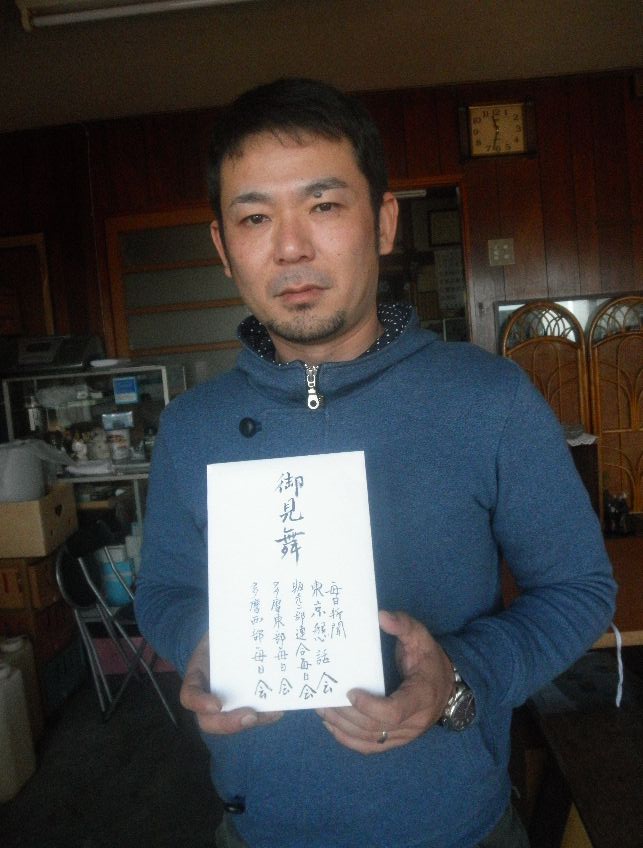 御見舞
毎日新聞
東京懇話会
部連合毎日会
多摩東部毎日会
多摩西部毎日会